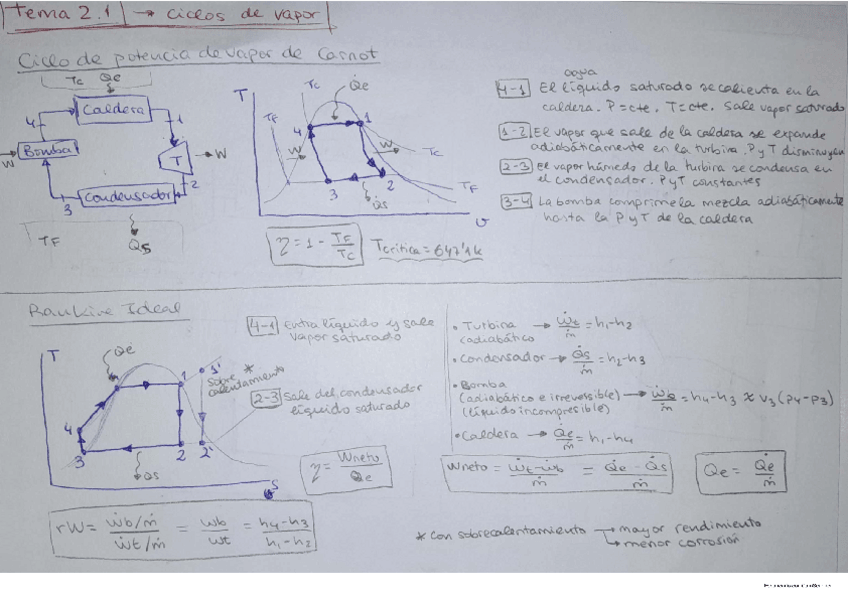 Tema 2.1 → ciclos de vapor
Ciclo de potencia de vapor de Carnot
Tc Qe
Caldera
4 1
Bomba T → W
W
Condensador 2
3
TF Qs
T Tc Qe
TF 4 1
W W
Tc
3 2 TF
Qs
v
η = 1 - TF/Tc
Tcrítica = 647'1k
agua
4-1 El líquido saturado se calienta en la
caldera. P=cte. T=cte. Sale vapor saturado
1-2 El vapor que sale de la caldera se expande
adiabáticamente en la turbina. P y T disminuyen
2-3 El vapor húmedo de la turbina se condensa en
el condensador. P y T constantes
3-4 La bomba comprime la mezcla adiabáticamente
hasta la P y T de la caldera
Rankine Ideal
T Qe
1 1'
Sobre *
calentamiento
4
3 2 2'
Qs
s
4-1 Entra líquido y sale
vapor saturado
2-3 Sale del condensador
líquido saturado
η = Wneto/Qe
• Turbina → Ẇt/ṁ = h1-h2
(adiabático)
• Condensador → Q̇s/ṁ = h2-h3
• Bomba
(adiabático e irreversible) → Ẇb/ṁ = h4-h3 ≈ v3(p4-p3)
(líquido incompresible)
• Caldera → Q̇e/ṁ = h1-h4
Wneto = Ẇt-Ẇb/ṁ = Q̇e-Q̇s/ṁ
Qe = Q̇e/ṁ
rW = Ẇb/ṁ / Ẇt/ṁ = Wb/Wt = h4-h3/h1-h2
* con sobrecalentamiento → mayor rendimiento
→ menor corrosión